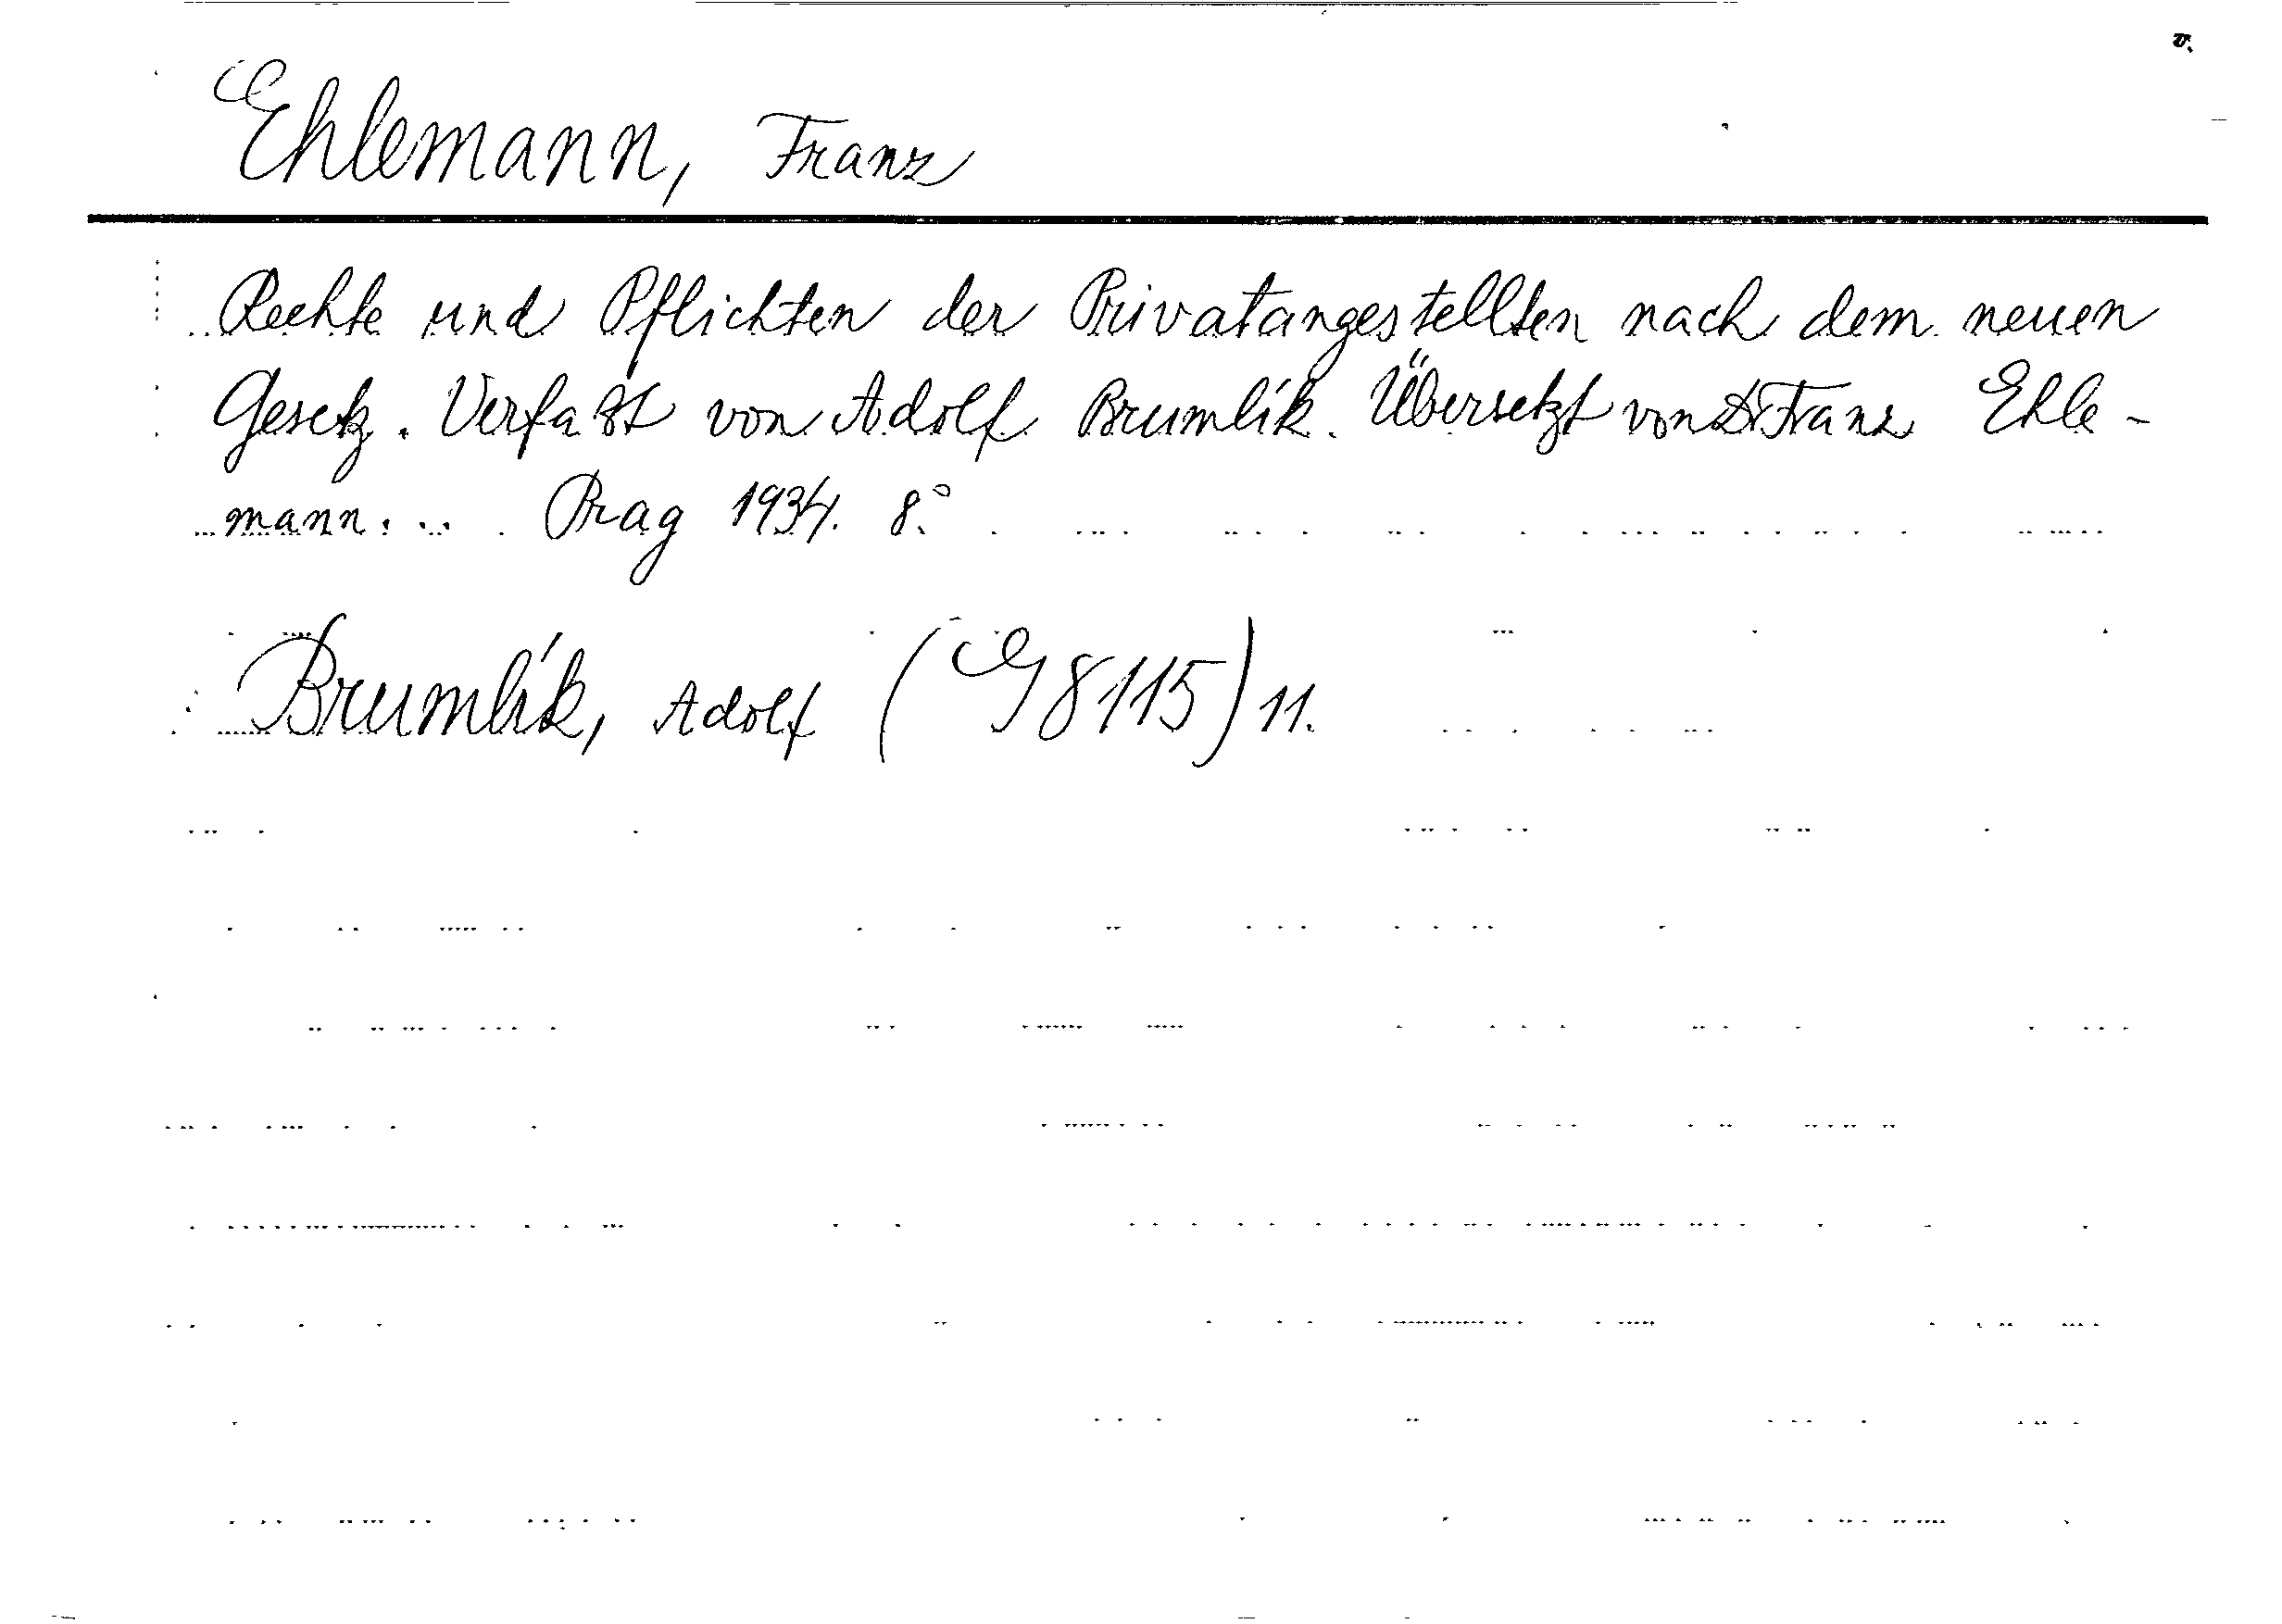 v.
Ehlemann, Franz
Rechte und Pflichten der Privatangestellten nach dem neuen
Gesetz. Verfaßt von Adolf Brumlík. Übersetzt von Dr Franz Ehle-
mann. .. Prag 1934. 8.°
Brumlík, Adolf (G 8115) 11.